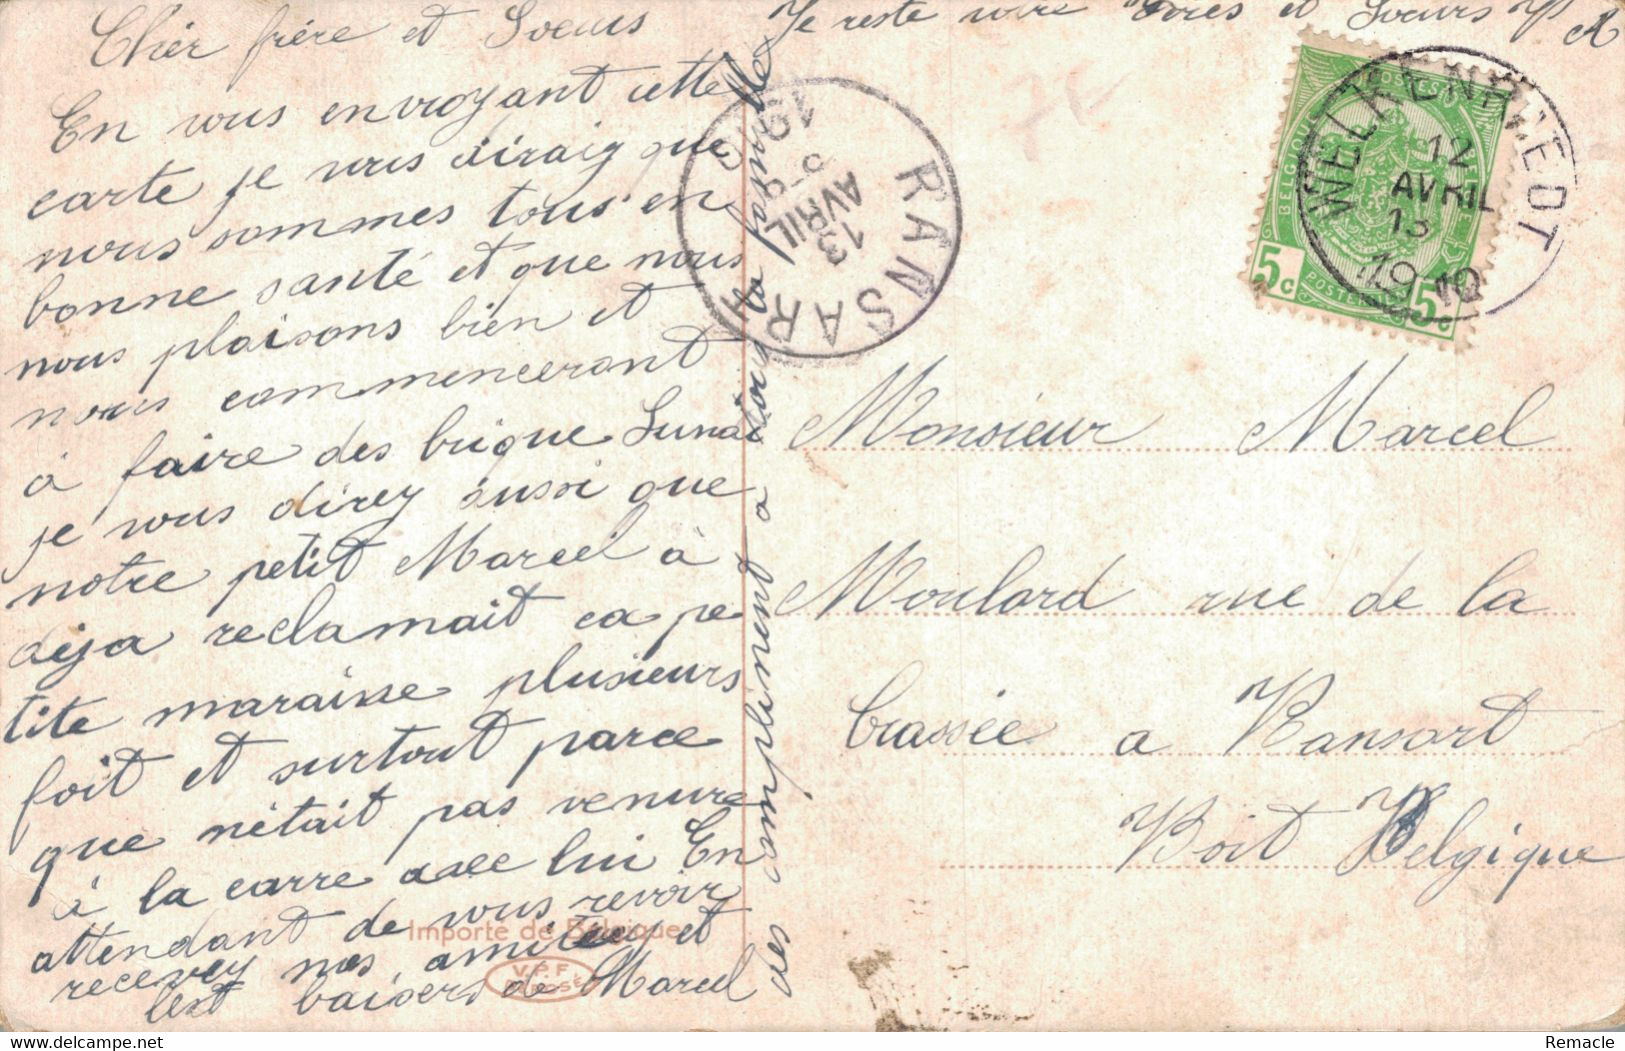 Chèr frère et Soeurs
En vous envoyant cette
carte je vous diraig que
nous sommes tous en
bonne santé et que nous
nous plaisons bien et
nous commenceront
à faire des brique Lundi
je vous direz aussi que
notre petit Marcel à
déja reclamait ca pe
tite maraine plusieurs
foit et surtout parce
que n'était pas venure
à la carre avec lui En
attendant de vous revoir
recevez nos amitiez et
les baisers de Marcel
des compliment a toute la famille
Je reste votre frères et Soeurs
RANSART
13
AVRIL
8-9
1910
WELKENRAEDT
12
AVRIL
13
1910
POSTES
BELGIQUE
5c
POSTERIJEN
5c
Monsieur Marcel
Moulard rue de la
brassée a Ransart
Belgique
Importé de Belgique
V.P.F
Remacle